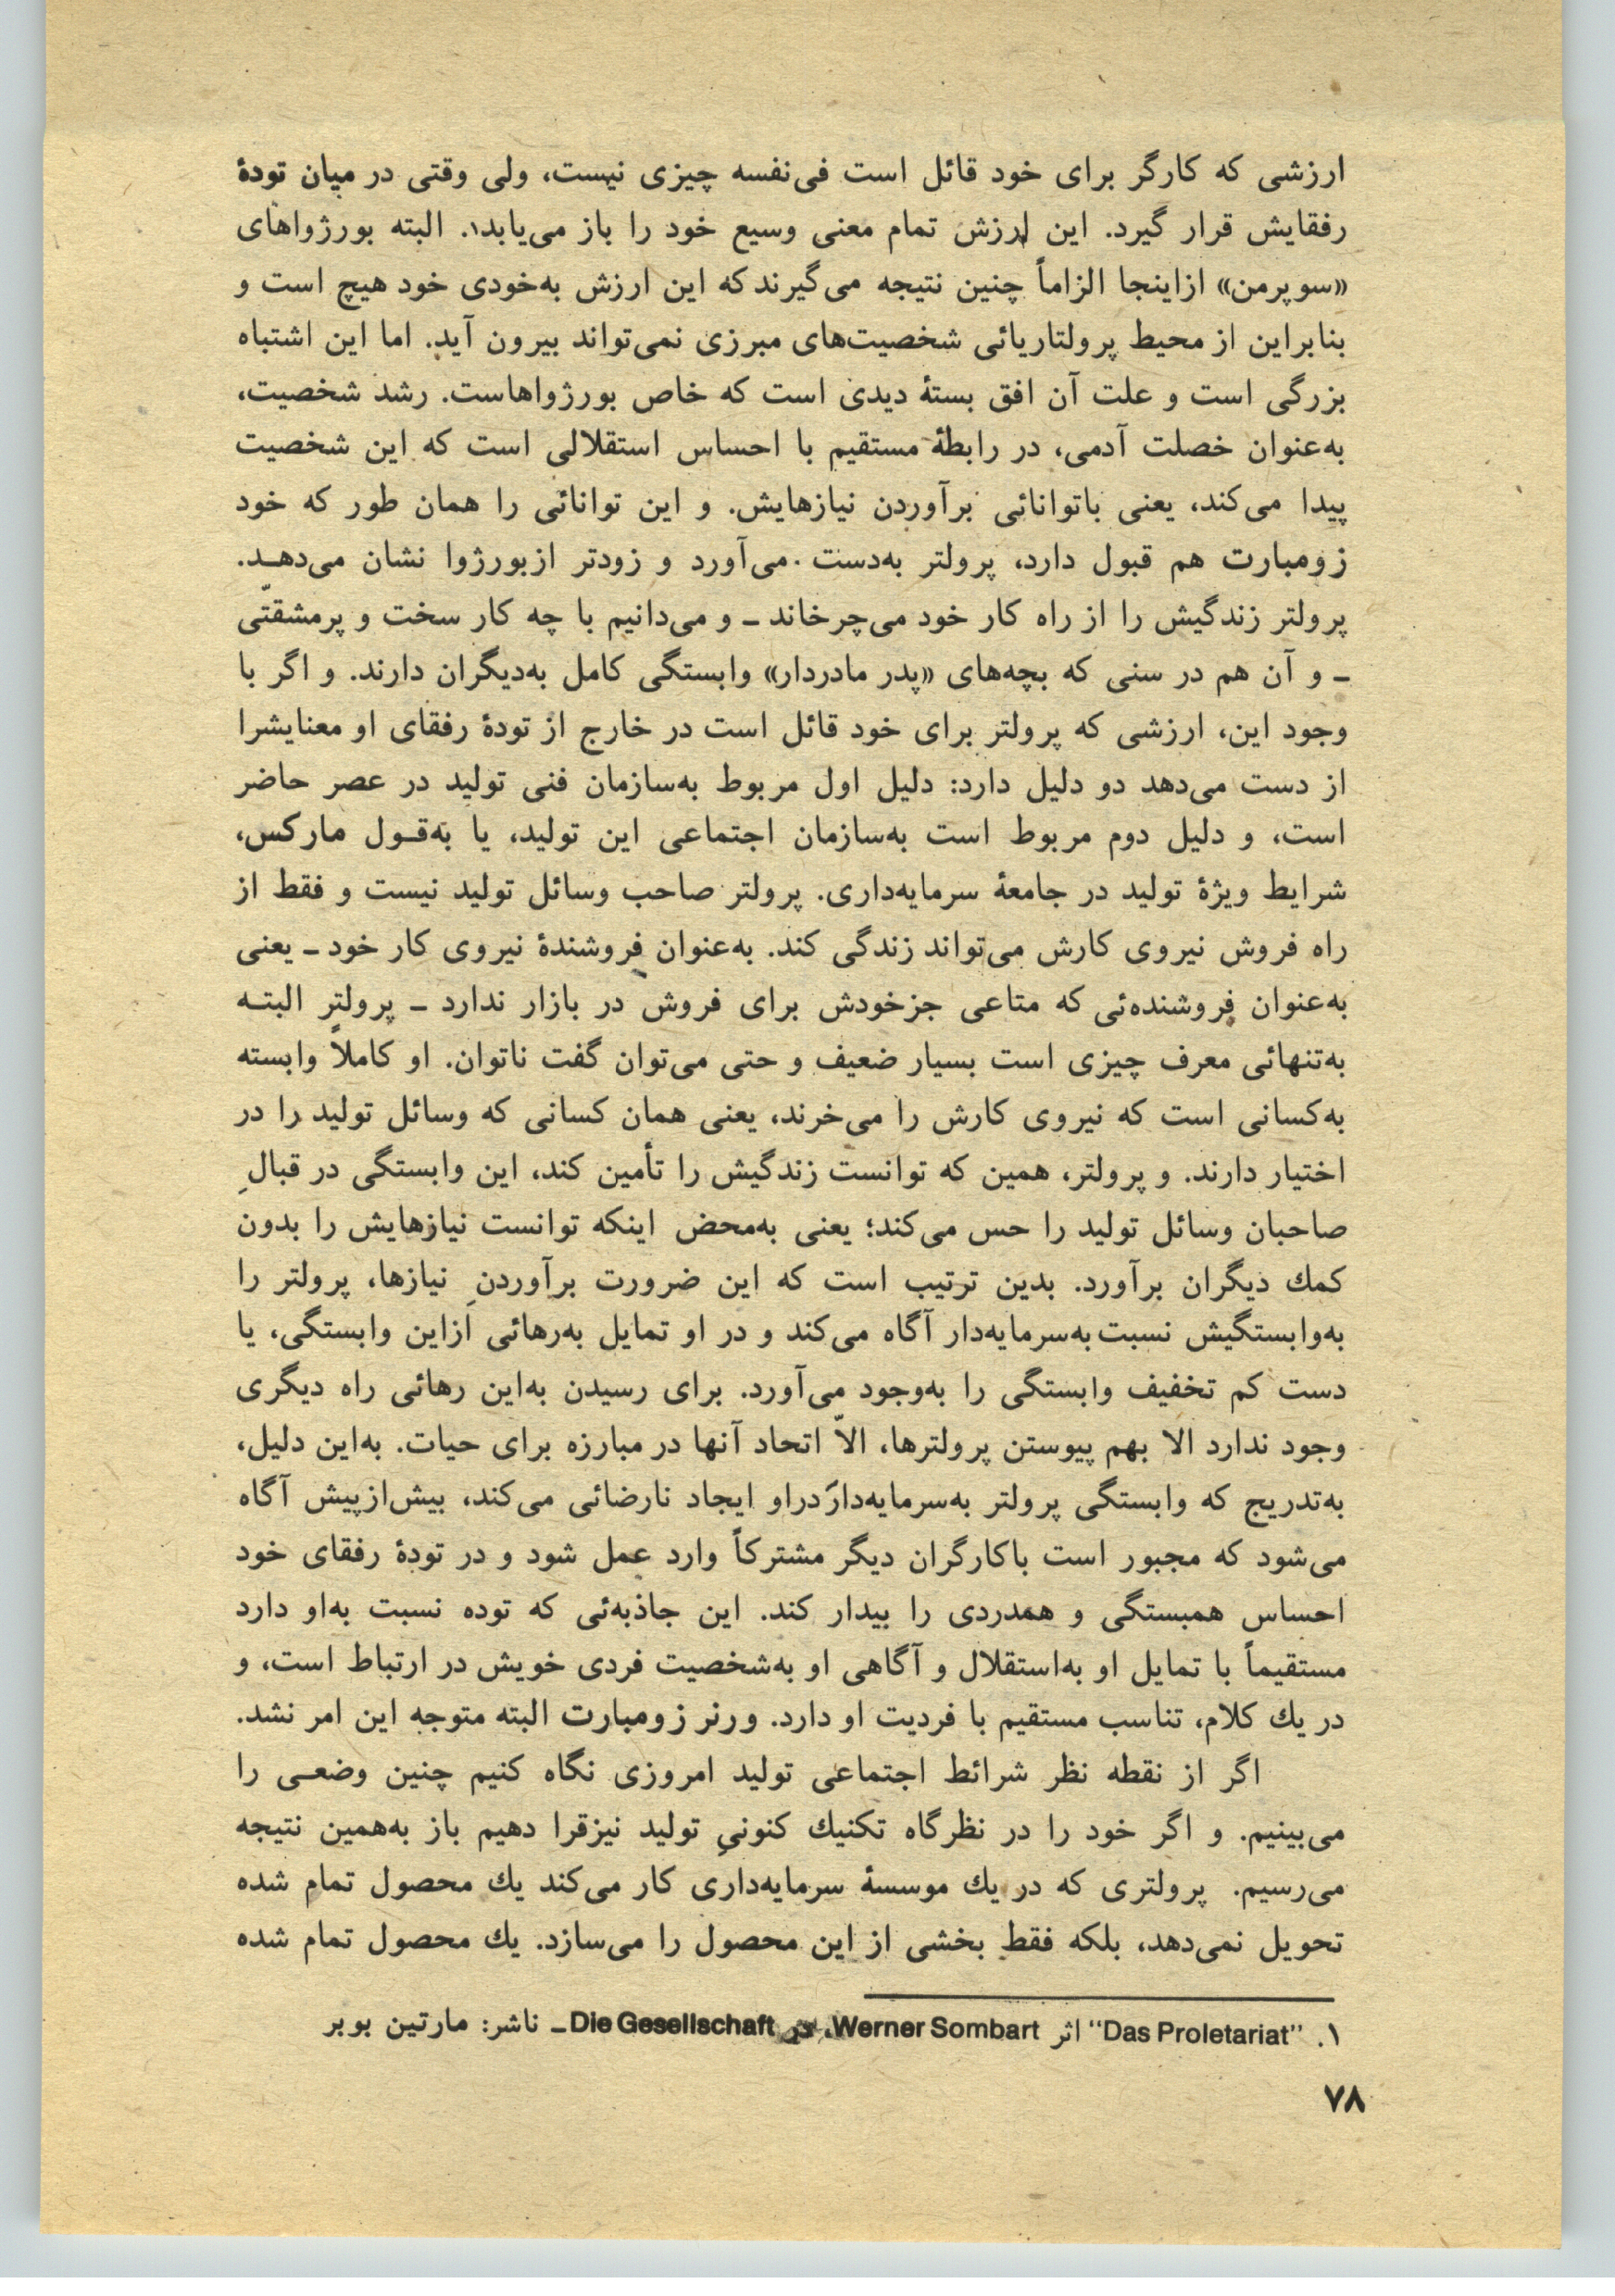 ارزشی که کارگر برای خود قائل است فی‌نفسه چیزی نیست، ولی وقتی در میان تودهٔ
رفقایش قرار گیرد. این ارزش تمام معنی وسیع خود را باز می‌یابد۱. البته بورژواهای
«سوپرمن» ازاینجا الزاماً چنین نتیجه می‌گیرند که این ارزش به‌خودی خود هیچ است و
بنابراین از محیط پرولتاریائی شخصیت‌های مبرزی نمی‌تواند بیرون آید. اما این اشتباه
بزرگی است و علت آن افق بستهٔ دیدی است که خاص بورژواهاست. رشد شخصیت،
به‌عنوان خصلت آدمی، در رابطهٔ مستقیم با احساس استقلالی است که این شخصیت
پیدا می‌کند، یعنی باتوانائی برآوردن نیازهایش. و این توانائی را همان طور که خود
زومبارت هم قبول دارد، پرولتر به‌دست می‌آورد و زودتر ازبورژوا نشان می‌دهـد.
پرولتر زندگیش را از راه کار خود می‌چرخاند ـ و می‌دانیم با چه کار سخت و پرمشقتّی
ـ و آن هم در سنی که بچه‌های «پدر مادردار» وابستگی کامل به‌دیگران دارند. و اگر با
وجود این، ارزشی که پرولتر برای خود قائل است در خارج از تودهٔ رفقای او معنایشرا
از دست می‌دهد دو دلیل دارد: دلیل اول مربوط به‌سازمان فنی تولید در عصر حاضر
است، و دلیل دوم مربوط است به‌سازمان اجتماعی این تولید، یا به‌قـول مارکس،
شرایط ویژهٔ تولید در جامعهٔ سرمایه‌داری. پرولتر صاحب وسائل تولید نیست و فقط از
راه فروش نیروی کارش می‌تواند زندگی کند. به‌عنوان فروشندهٔ نیروی کار خود ـ یعنی
به‌عنوان فروشنده‌ئی که متاعی جزخودش برای فروش در بازار ندارد ـ پرولتر البتـه
به‌تنهائی معرف چیزی است بسیار ضعیف و حتی می‌توان گفت ناتوان. او کاملاً وابسته
به‌کسانی است که نیروی کارش را می‌خرند، یعنی همان کسانی که وسائل تولید را در
اختیار دارند. و پرولتر، همین که توانست زندگیش را تأمین کند، این وابستگی در قبالِ
صاحبان وسائل تولید را حس می‌کند؛ یعنی به‌محض اینکه توانست نیازهایش را بدون
کمك دیگران برآورد. بدین ترتیب است که این ضرورت برآوردنِ نیازها، پرولتر را
به‌وابستگیش نسبت به‌سرمایه‌دار آگاه می‌کند و در او تمایل به‌رهائی ازاین وابستگی، یا
دست کم تخفیف وابستگی را به‌وجود می‌آورد. برای رسیدن به‌این رهائی راه دیگری
وجود ندارد الا بهم پیوستن پرولترها، الاّ اتحاد آنها در مبارزه برای حیات. به‌این دلیل،
به‌تدریج که وابستگی پرولتر به‌سرمایه‌دار دراو ایجاد نارضائی می‌کند، بیش‌ازپیش آگاه
می‌شود که مجبور است باکارگران دیگر مشترکاً وارد عمل شود و در تودهٔ رفقای خود
احساس همبستگی و همدردی را بیدار کند. این جاذبه‌ئی که توده نسبت به‌او دارد
مستقیماً با تمایل او به‌استقلال و آگاهی او به‌شخصیت فردی خویش در ارتباط است، و
در یك کلام، تناسب مستقیم با فردیت او دارد. ورنر زومبارت البته متوجه این امر نشد.
اگر از نقطه نظر شرائط اجتماعی تولید امروزی نگاه کنیم چنین وضعـی را
می‌بینیم. و اگر خود را در نظرگاه تکنیك کنونیِ تولید نیزقرا دهیم باز به‌همین نتیجه
می‌رسیم. پرولتری که در یك موسسهٔ سرمایه‌داری کار می‌کند یك محصول تمام شده
تحویل نمی‌دهد، بلکه فقط بخشی از این محصول را می‌سازد. یك محصول تمام شده
۱. "Das Proletariat" اثر Werner Sombart، در Die Gesellschaft ـ ناشر: مارتین بوبر
۷۸